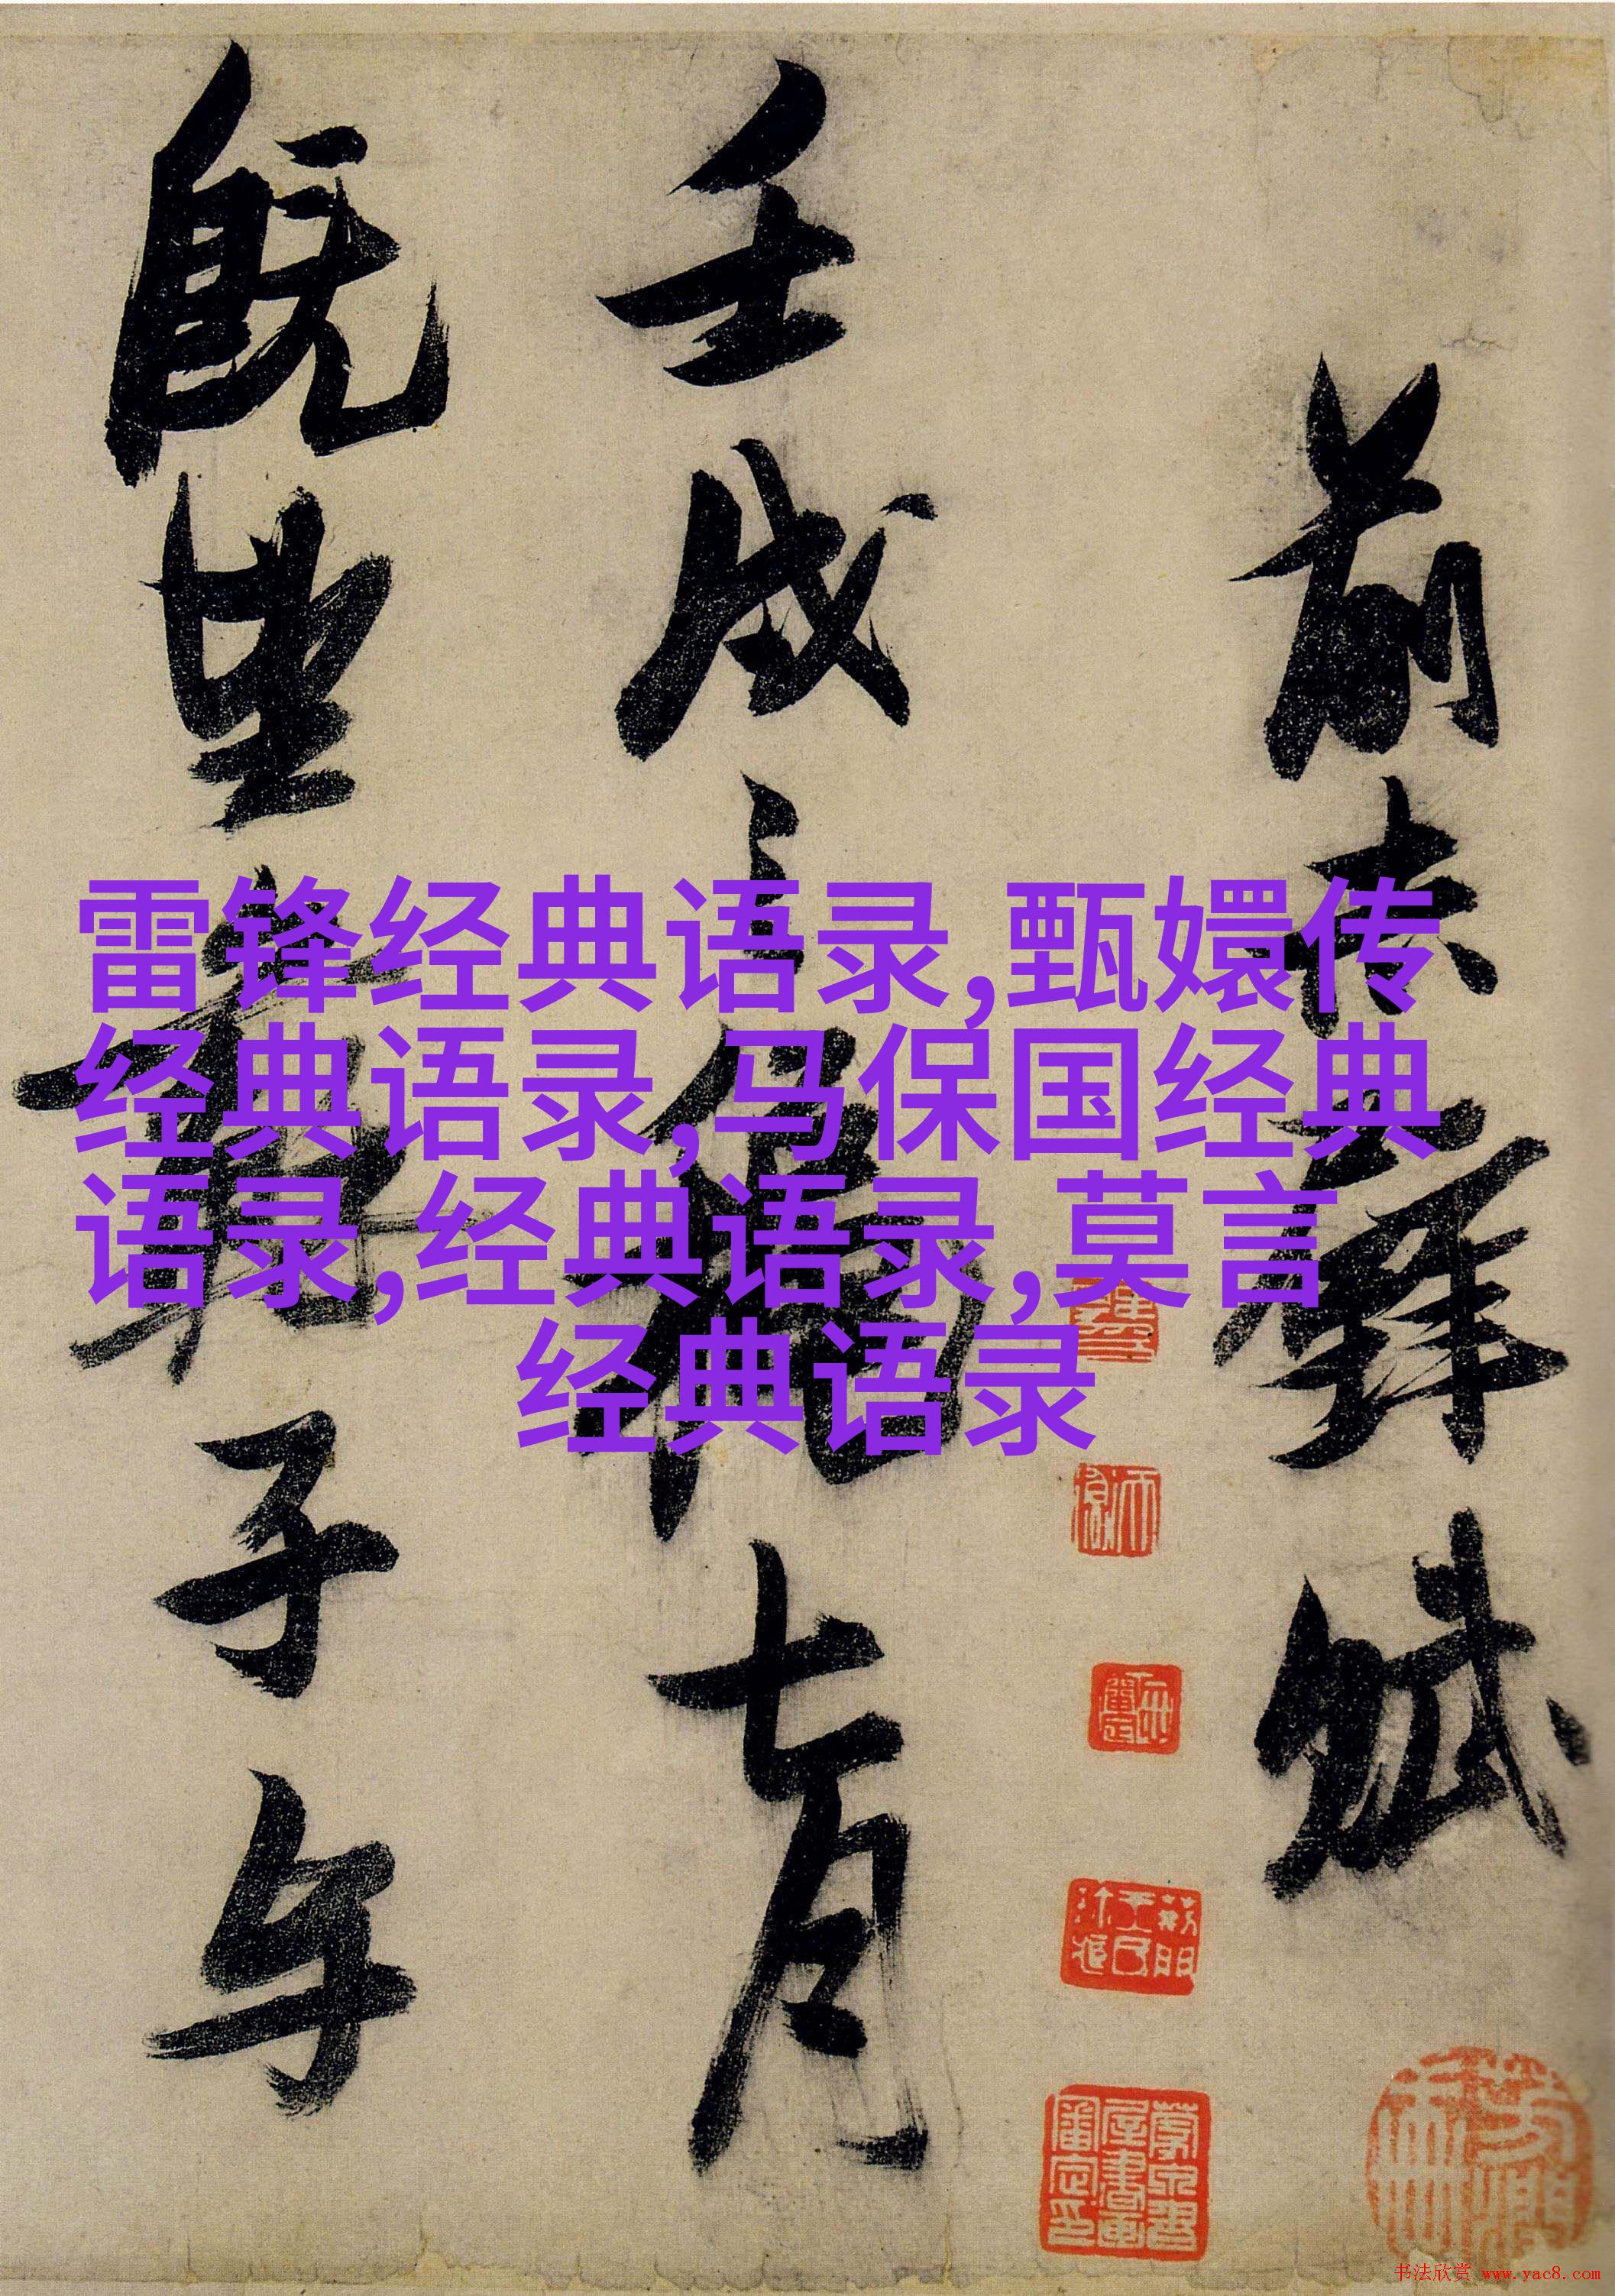 前赤壁賦
壬戌之七月
既望子与
雷锋经典语录,甄嬛传
经典语录,马保国经典
语录,经典语录,莫言
经典语录
书法欣赏 www.yac8.com